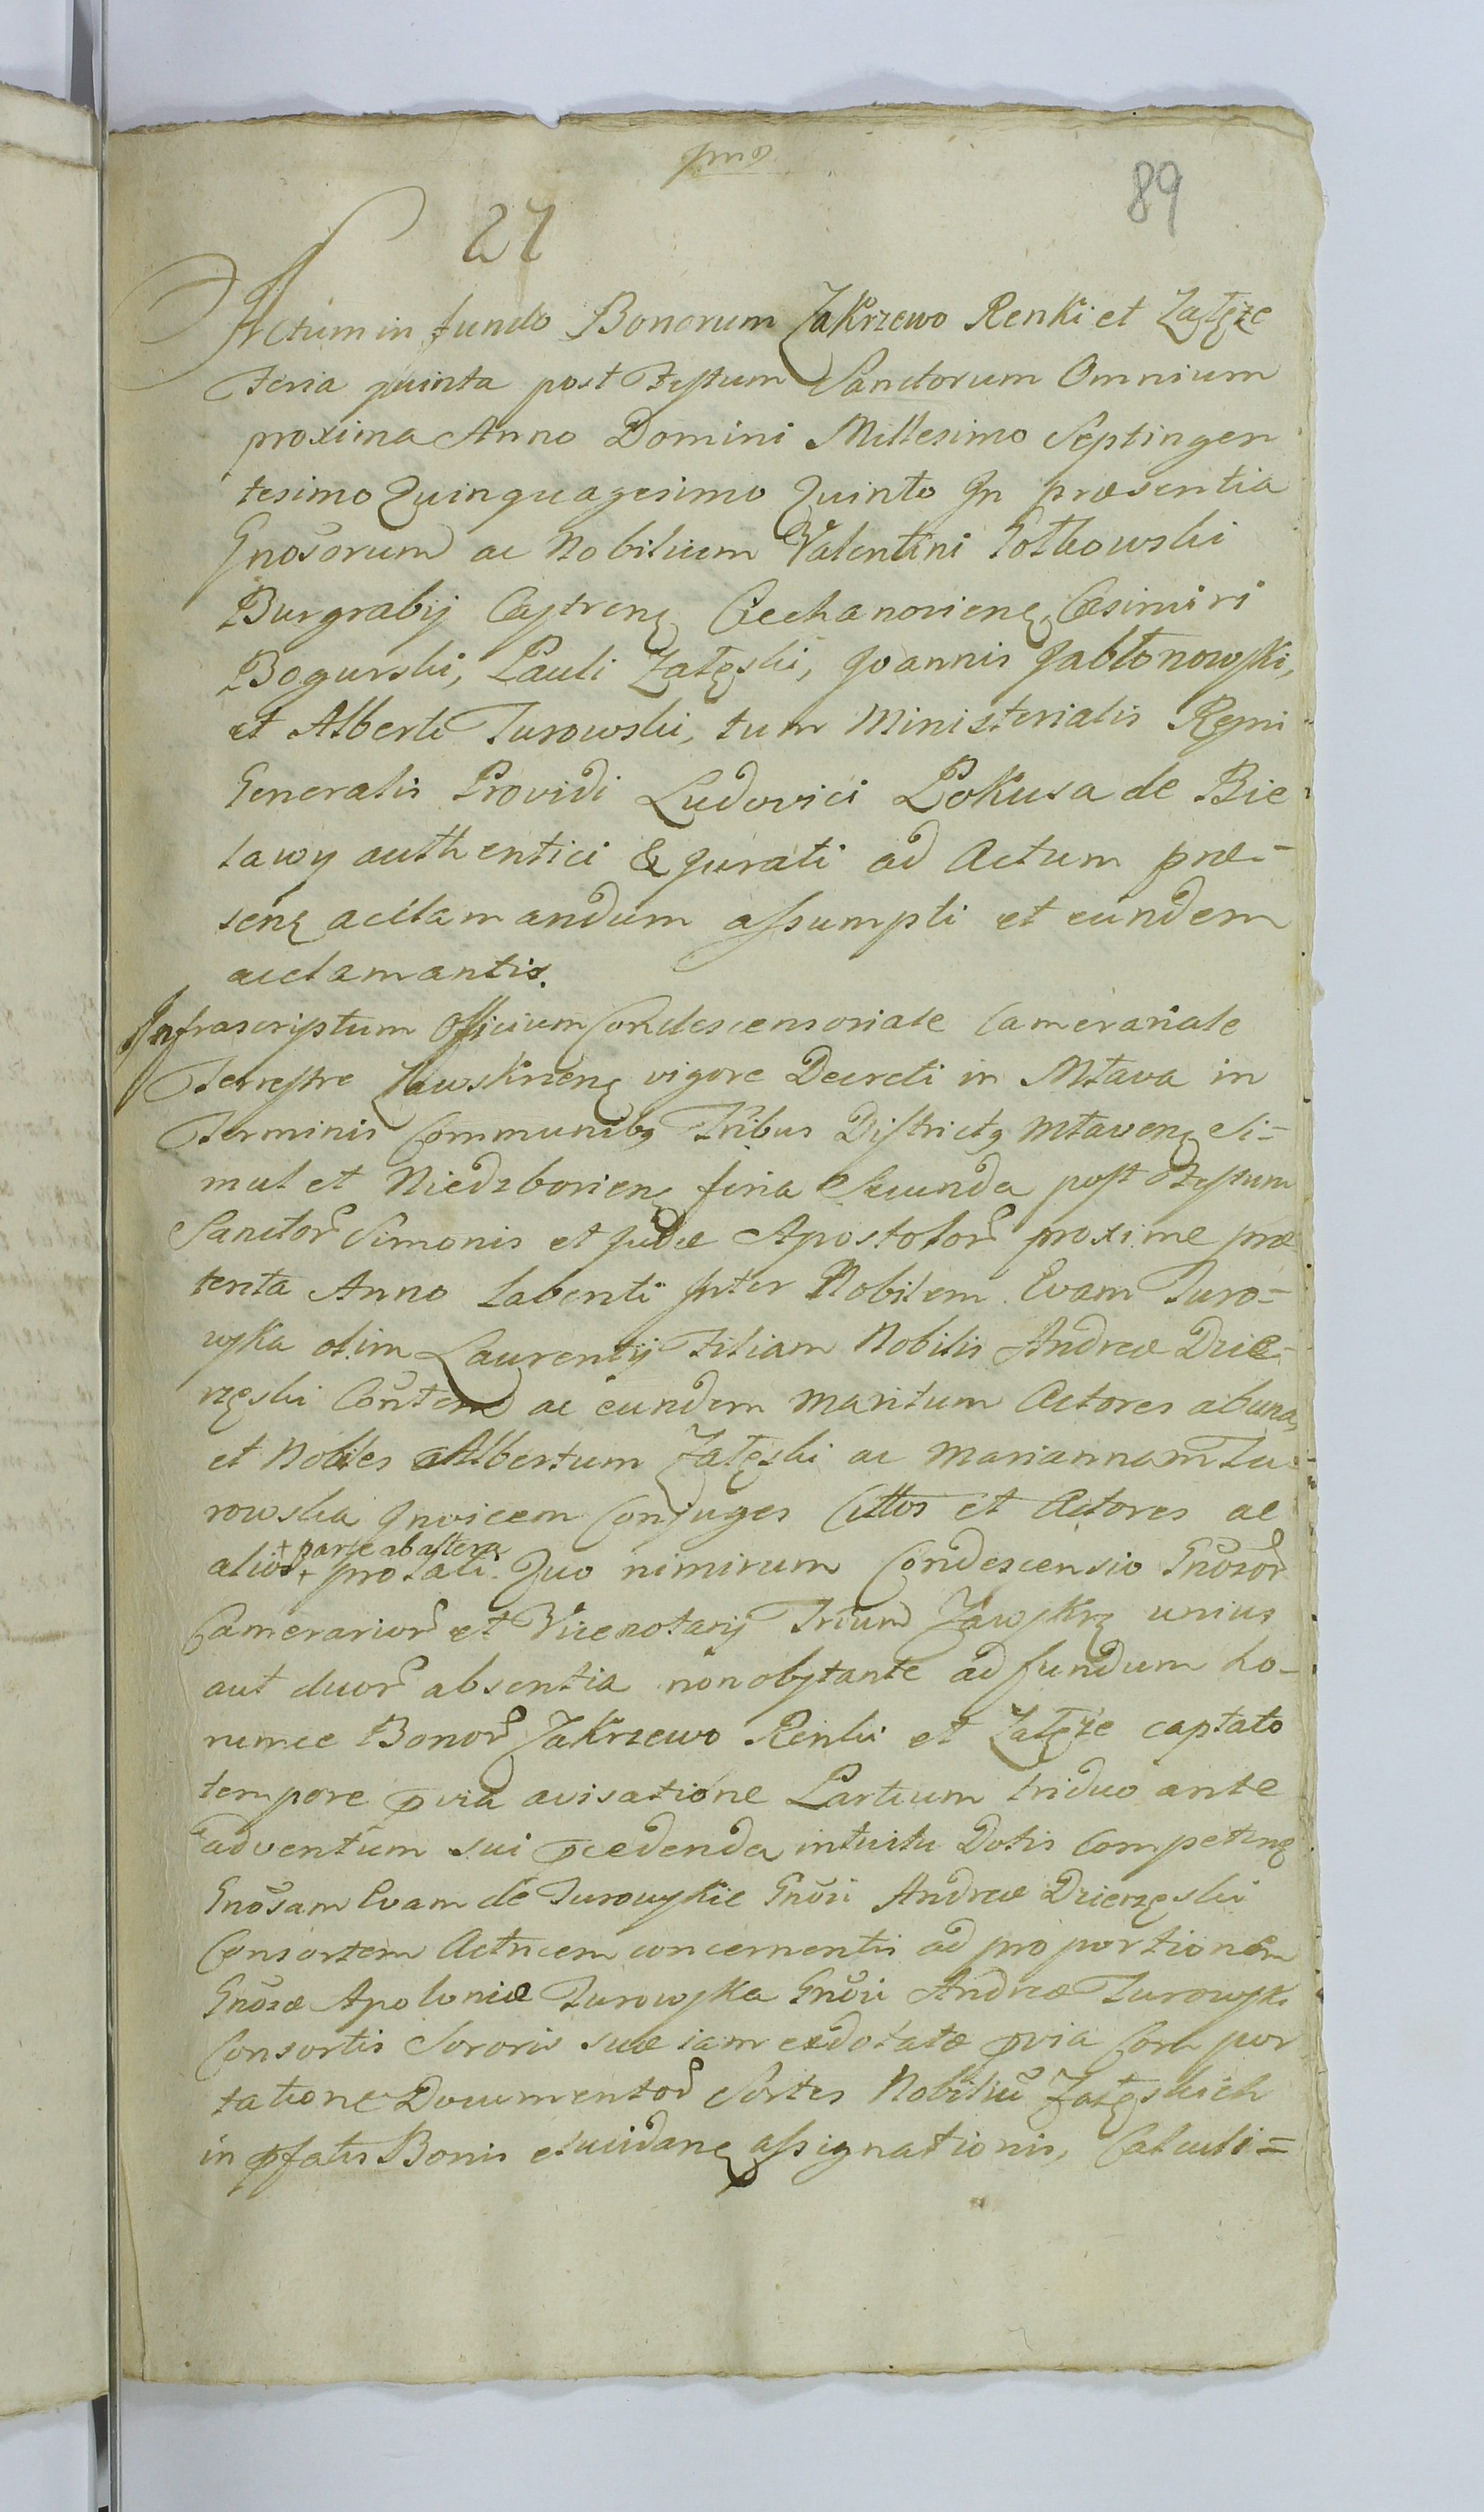 89
27
Actum in fundo Bonorum Zakrzewo Renki et Załęze
Feria quinta post Festum Sanctorum Omnium
proxima Anno Domini Millesimo Septingen
tesimo Quinquagesimo Quinto In præsentia
Gnosorum ac Nobilium Valentini Gotkowski
Burgrabij Castrenę Ciechanovienę, Casimiri
Bogurski, Pauli Załęski, Joannis Jabłonowski,
et Alberti Turowski, tum Ministerialis Regni
Generalis Providi Ludovici Pokusa de Bie
lawy authentici & Jurati ad Actum præ-
senę acclamandum assumpti et eundem
acclamantis.
Infrascriptum Officium Condescensoriale Camerariale
Terrestre Zawskrzenę vigore Decreti in Mława in
Terminis Communibq Tribus Districtq Mławenę Si=
mul et Niedzborienę feria Secunda post Festum
Sanctor Simonis et Judæ Apostolor proxime præ
terita Anno Labenti Inter Nobilem Evam Turo=
wska olim Laurentij Filiam Nobilis Andreæ Dzie-
rzęski Contem ac eundem Maritum Actores ab una,
et Nobiles Albertum Załęski ac Mariannam Tu
rowska Invicem Conjuges Cittos et Actores ac
alios + + parte ab altera prolati. Quo nimirum Condescensio Gnosor
Camerarior et Vicenotarij Trium Zawskrz unius
aut duor absentia non obstante ad fundum ho-
rumce Bonor Zakrzewo Renki et Załęze captato
tempore pvia avisatione Partium triduo ante
adventum sui pcedenda intuitu Dotis Competenę
Gnosam Evam de Turowskie Gnosi Andreæ Dzierzęski
Consortem Actricem concernentis ad proportionem
Gnosæ Apoloniæ Turowska Gnosi Andreæ Turowski
Consortis Sororis suæ iam exdotatæ pvia Compor
tatione Documentor Sortis Nobiliu Załęskich
in pfatis Bonis elucidanę assignationis, Calculi=